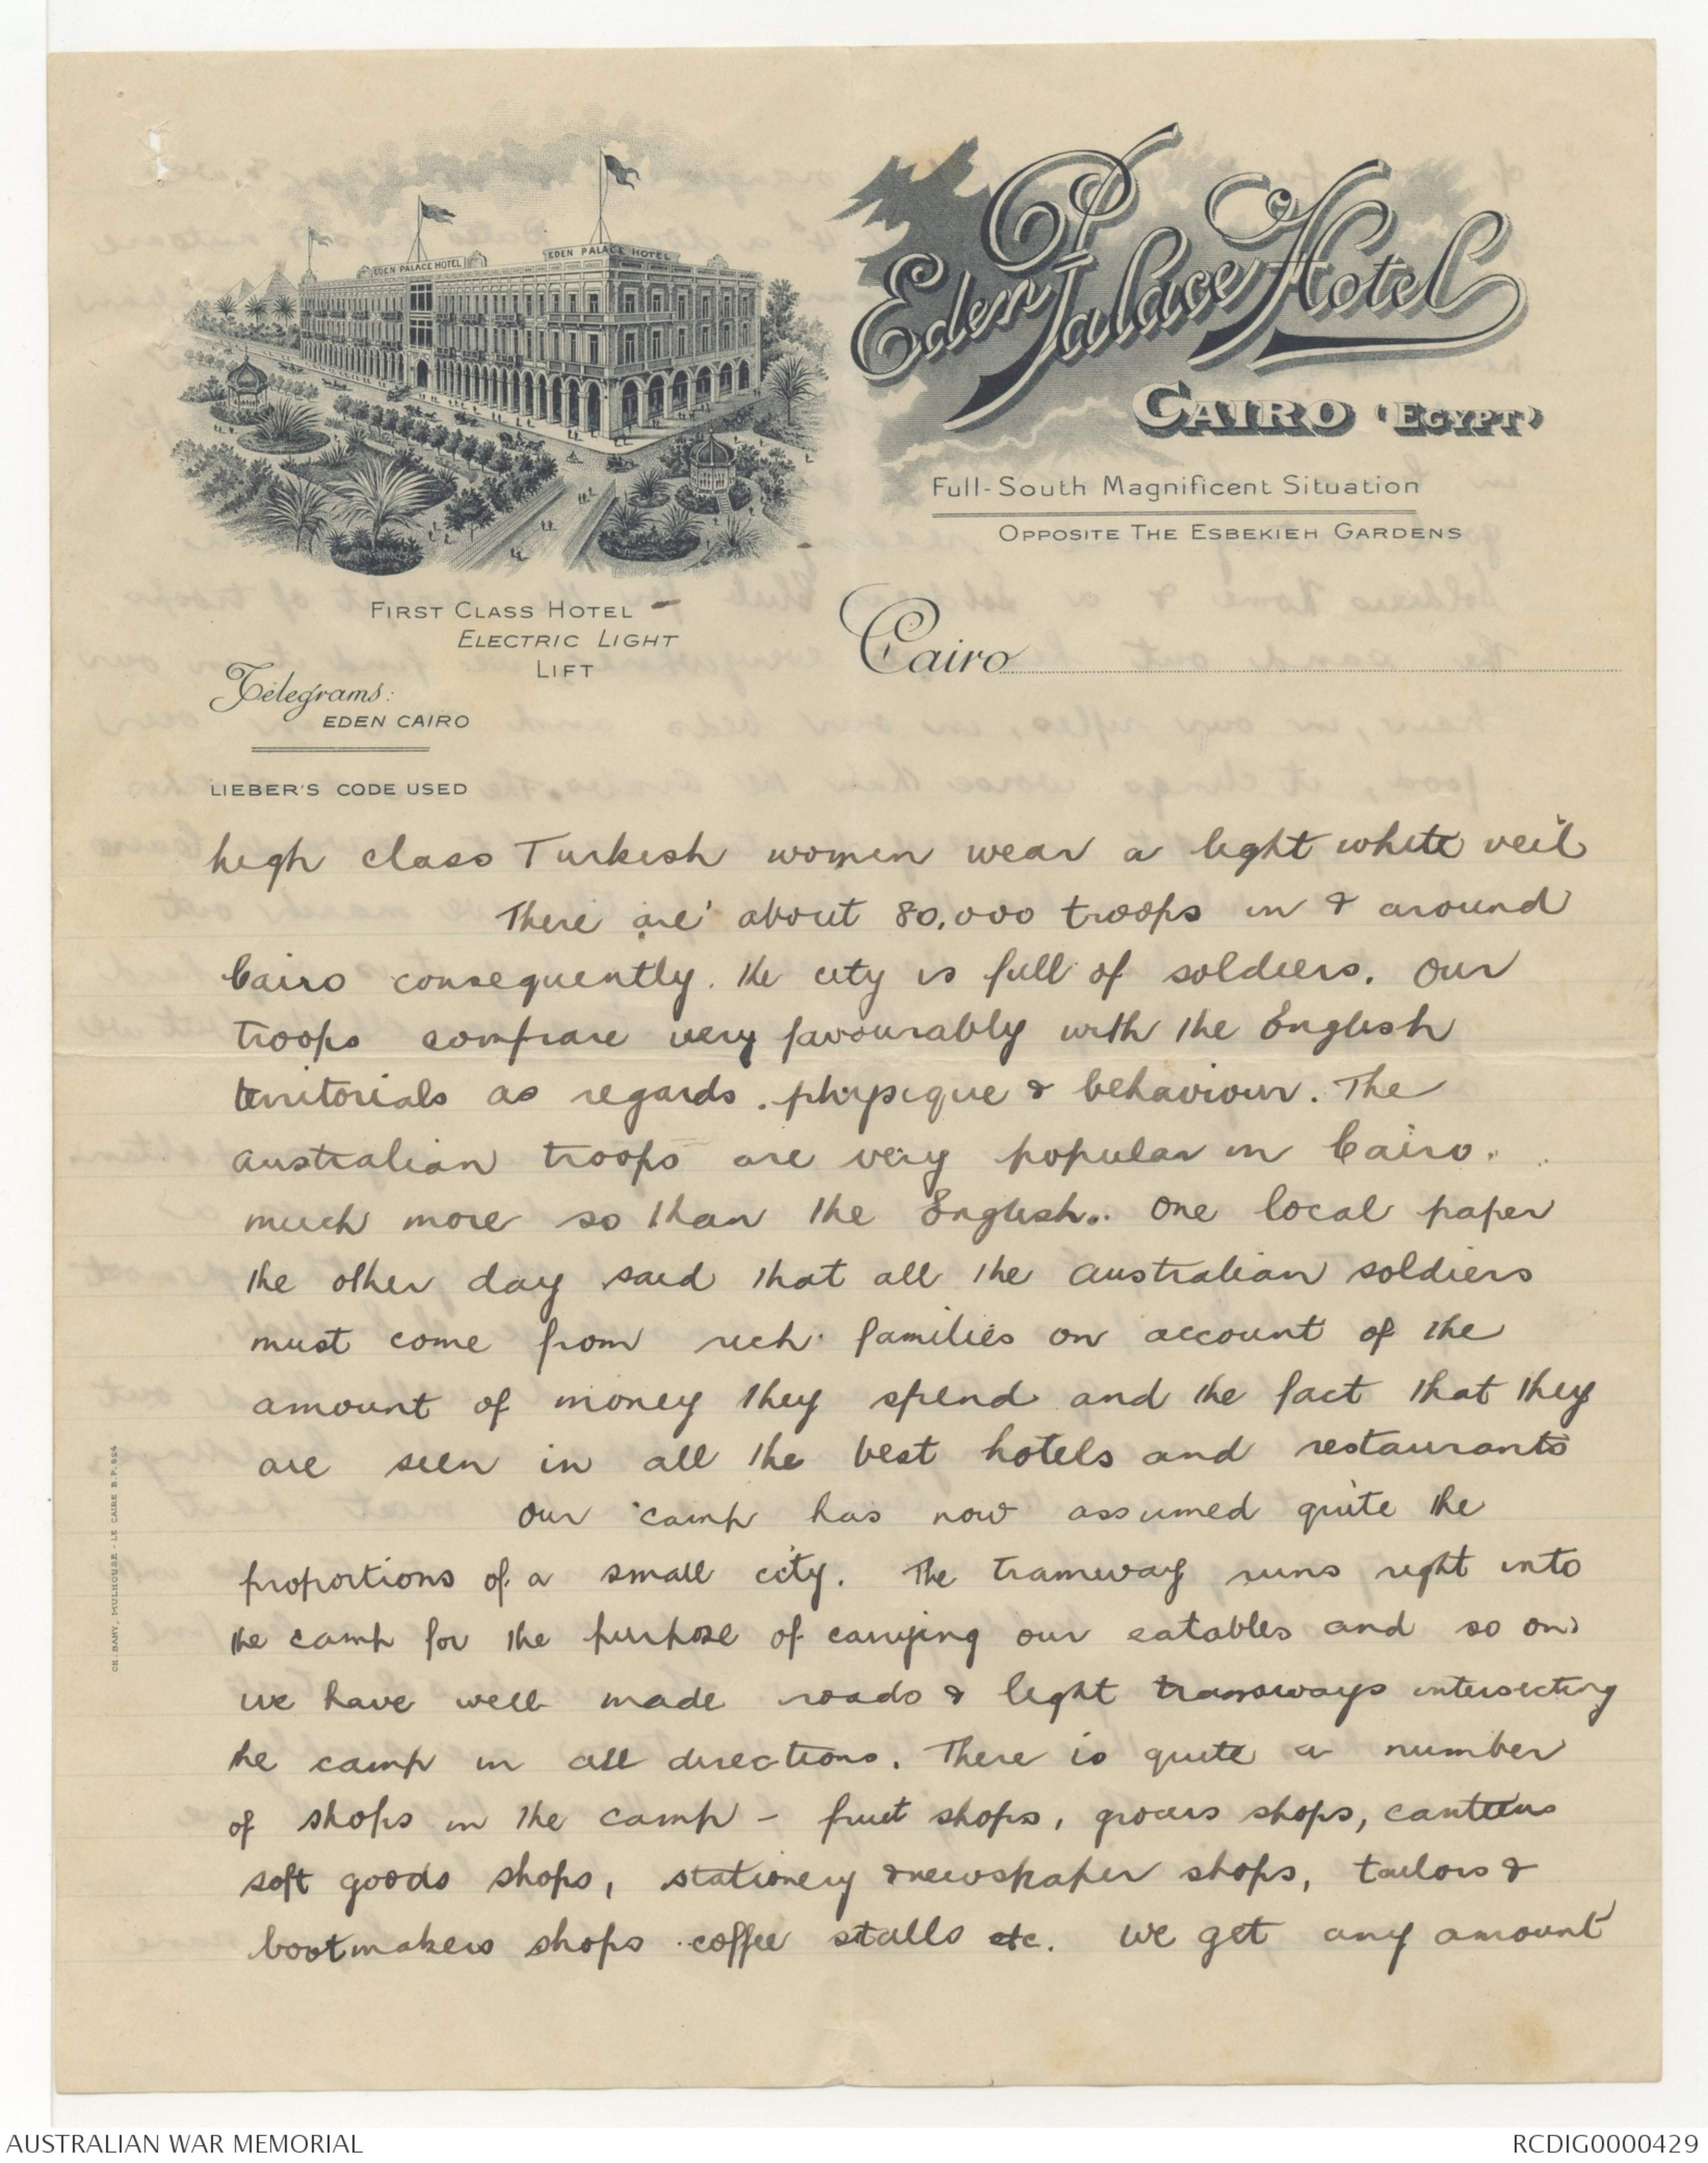 EDEN PALACE HOTEL
EDEN PALACE HOTEL
Eden Palace Hotel
CAIRO (EGYPT)
Full-South Magnificent Situation
OPPOSITE THE ESBEKIEH GARDENS
FIRST CLASS HOTEL
ELECTRIC LIGHT
LIFT
Telegrams:
EDEN CAIRO
LIEBER'S CODE USED
Cairo
high class Turkish women wear a light white veil
There are about 80,000 troops in & around
Cairo consequently. the city is full of soldiers. Our
troops compare very favourably with the English
territorials as regards. physique & behaviour. The
Australian troops are very popular in Cairo.
much more so than the English.. One local paper
the other day said that all the Australian soldiers
must come from rich families on account of the
amount of money they spend and the fact that they
are seen in all the best hotels and restaurants
Our camp has now assumed quite the
proportions of a small city. The tramway runs right into
the camp for the purpose of carrying our eatables and so on
we have well made roads & light tramways intersecting
the camp in all directions. There is quite a number
of shops in the camp - fruit shops, grocers shops, canteens
soft goods shops, stationery & newspaper shops, tailors &
bootmakers shops coffee stalls etc. We get any amount
CH. BAHY, MULHOUSE - LE CAIRE B.P. 664
AUSTRALIAN WAR MEMORIAL
RCDIG0000429